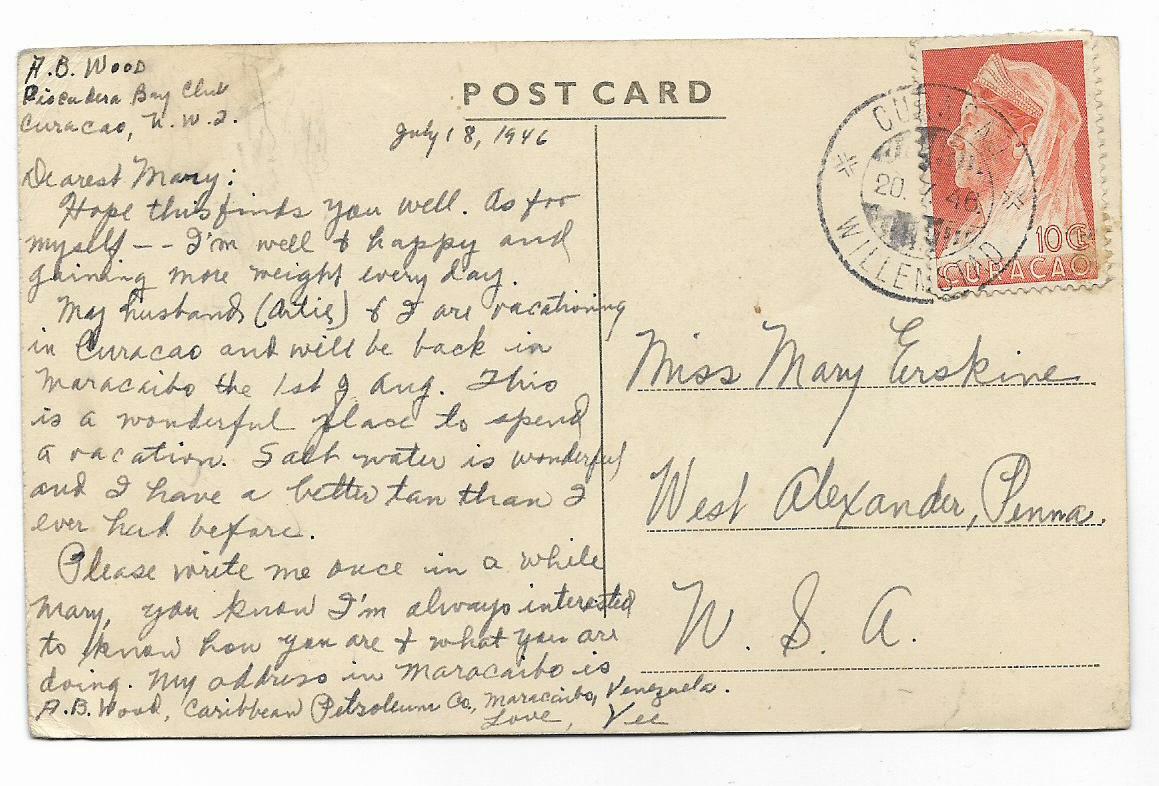 A.B. Wood
Piscadera Bay Club
Curacao, N.W.I.
POST CARD
July 18, 1946
Dearest Mary:
Hope this finds you well. As for
myself -- I'm well & happy and
gaining more weight every day.
My husband (Artie) & I are vacationing
in Curacao and will be back in
Maracaibo the 1st of Aug. This
is a wonderful place to spend
a vacation. Salt water is wonderful
and I have a better tan than I
ever had before.
Please write me once in a while
Mary, you know I'm always interested
to know how you are & what you are
doing. My address in Maracaibo is
A.B. Wood, Caribbean Petroleum Co., Maracaibo, Venezuela.
Love, Vee
CURAÇAO
20. 46
WILLEMSTAD
10 CT
CURAÇAO
Miss Mary Erskine
West Alexander, Penna.
U. S. A.